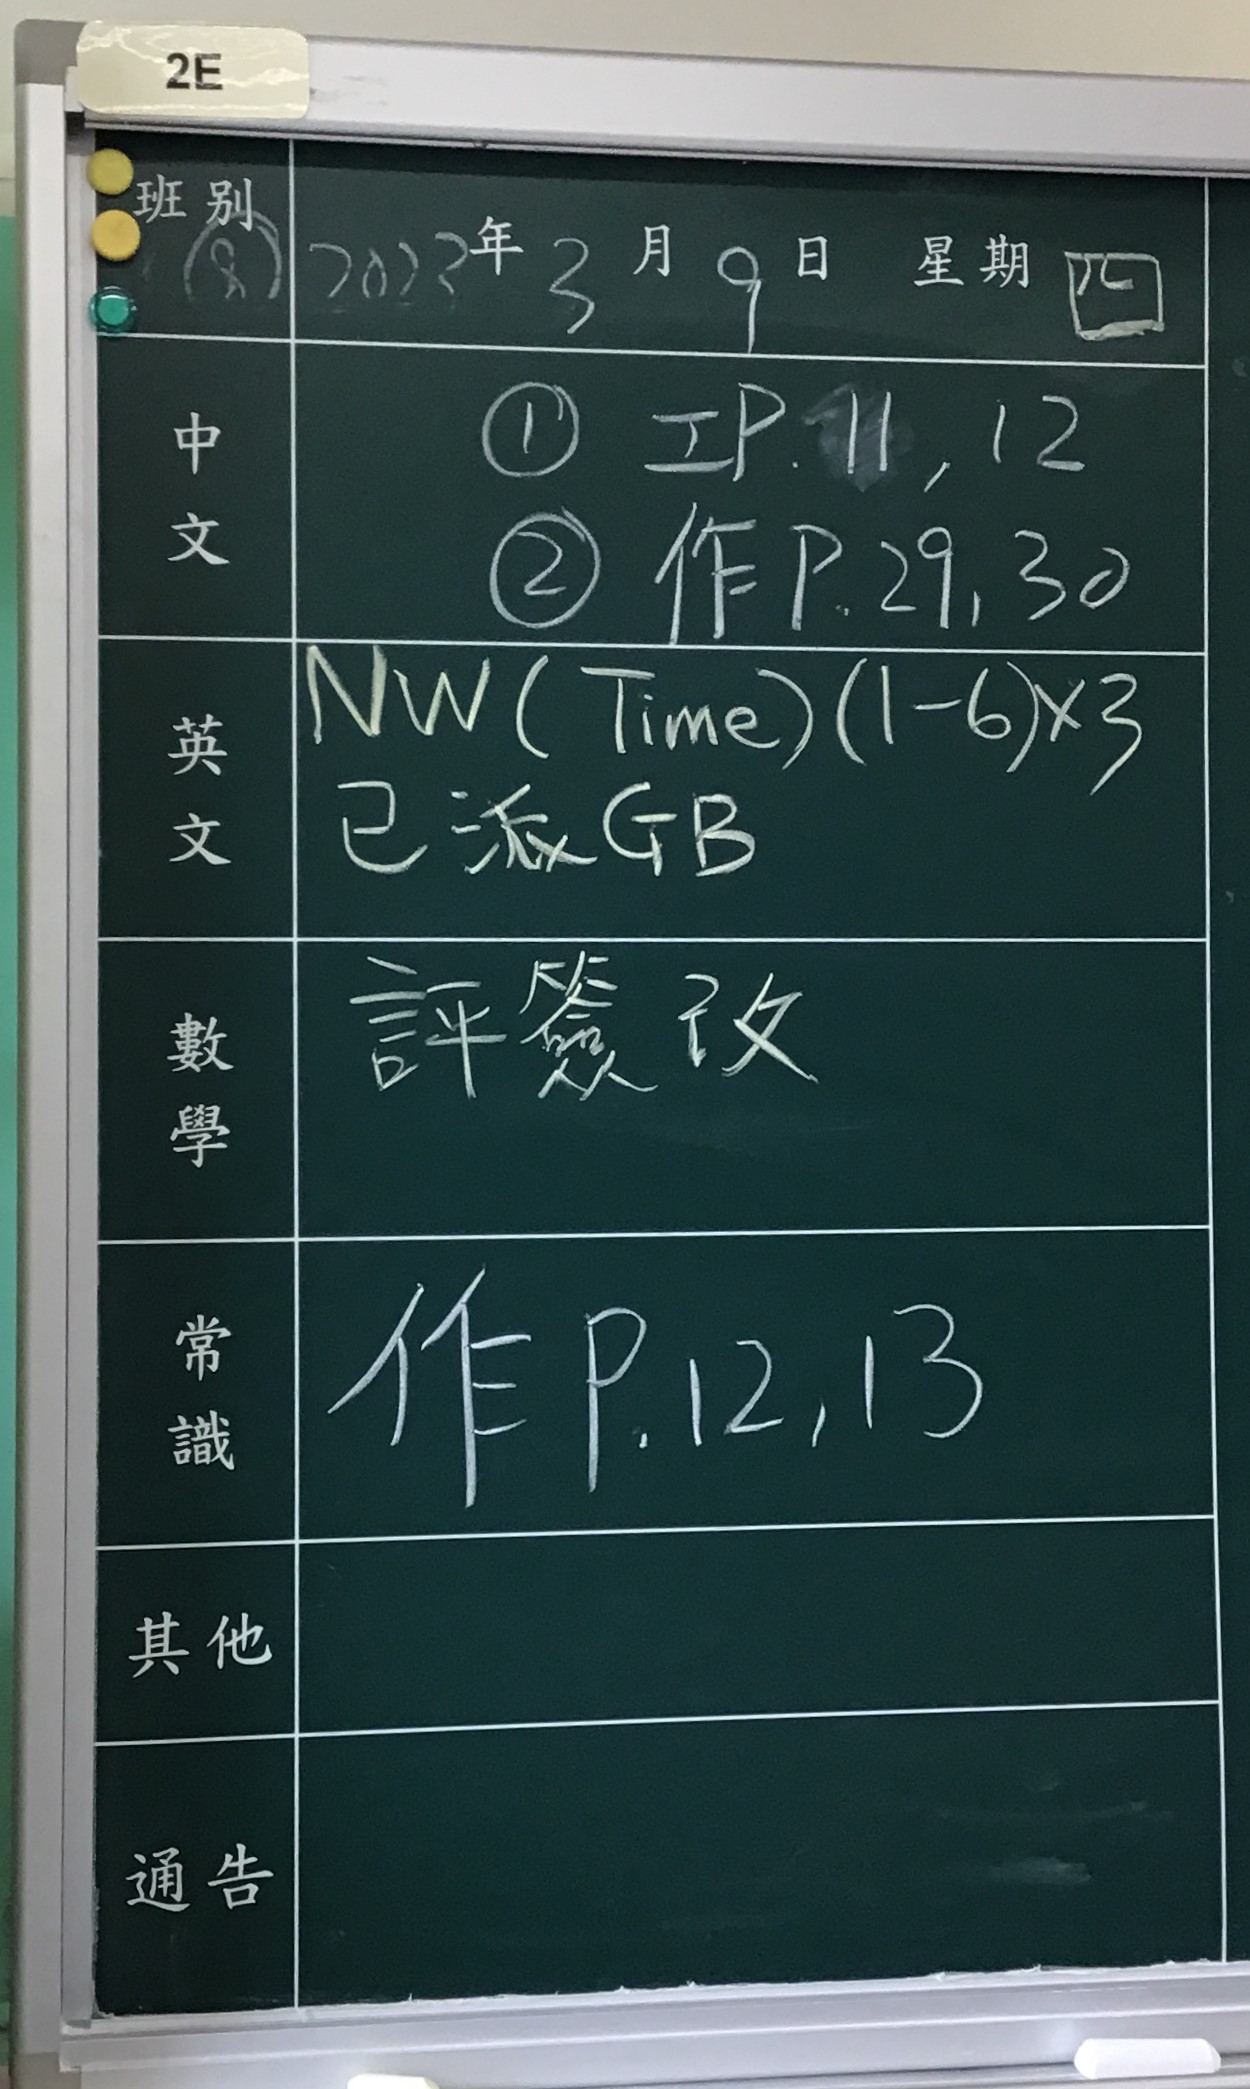 2E
班別
(8)
2023年3月9日 星期四
中文
① 工P.11, 12
② 作P.29, 30
英文
NW(Time)(1-6)×3
已派GB
數學
評簽改
常識
作P.12, 13
其他
通告